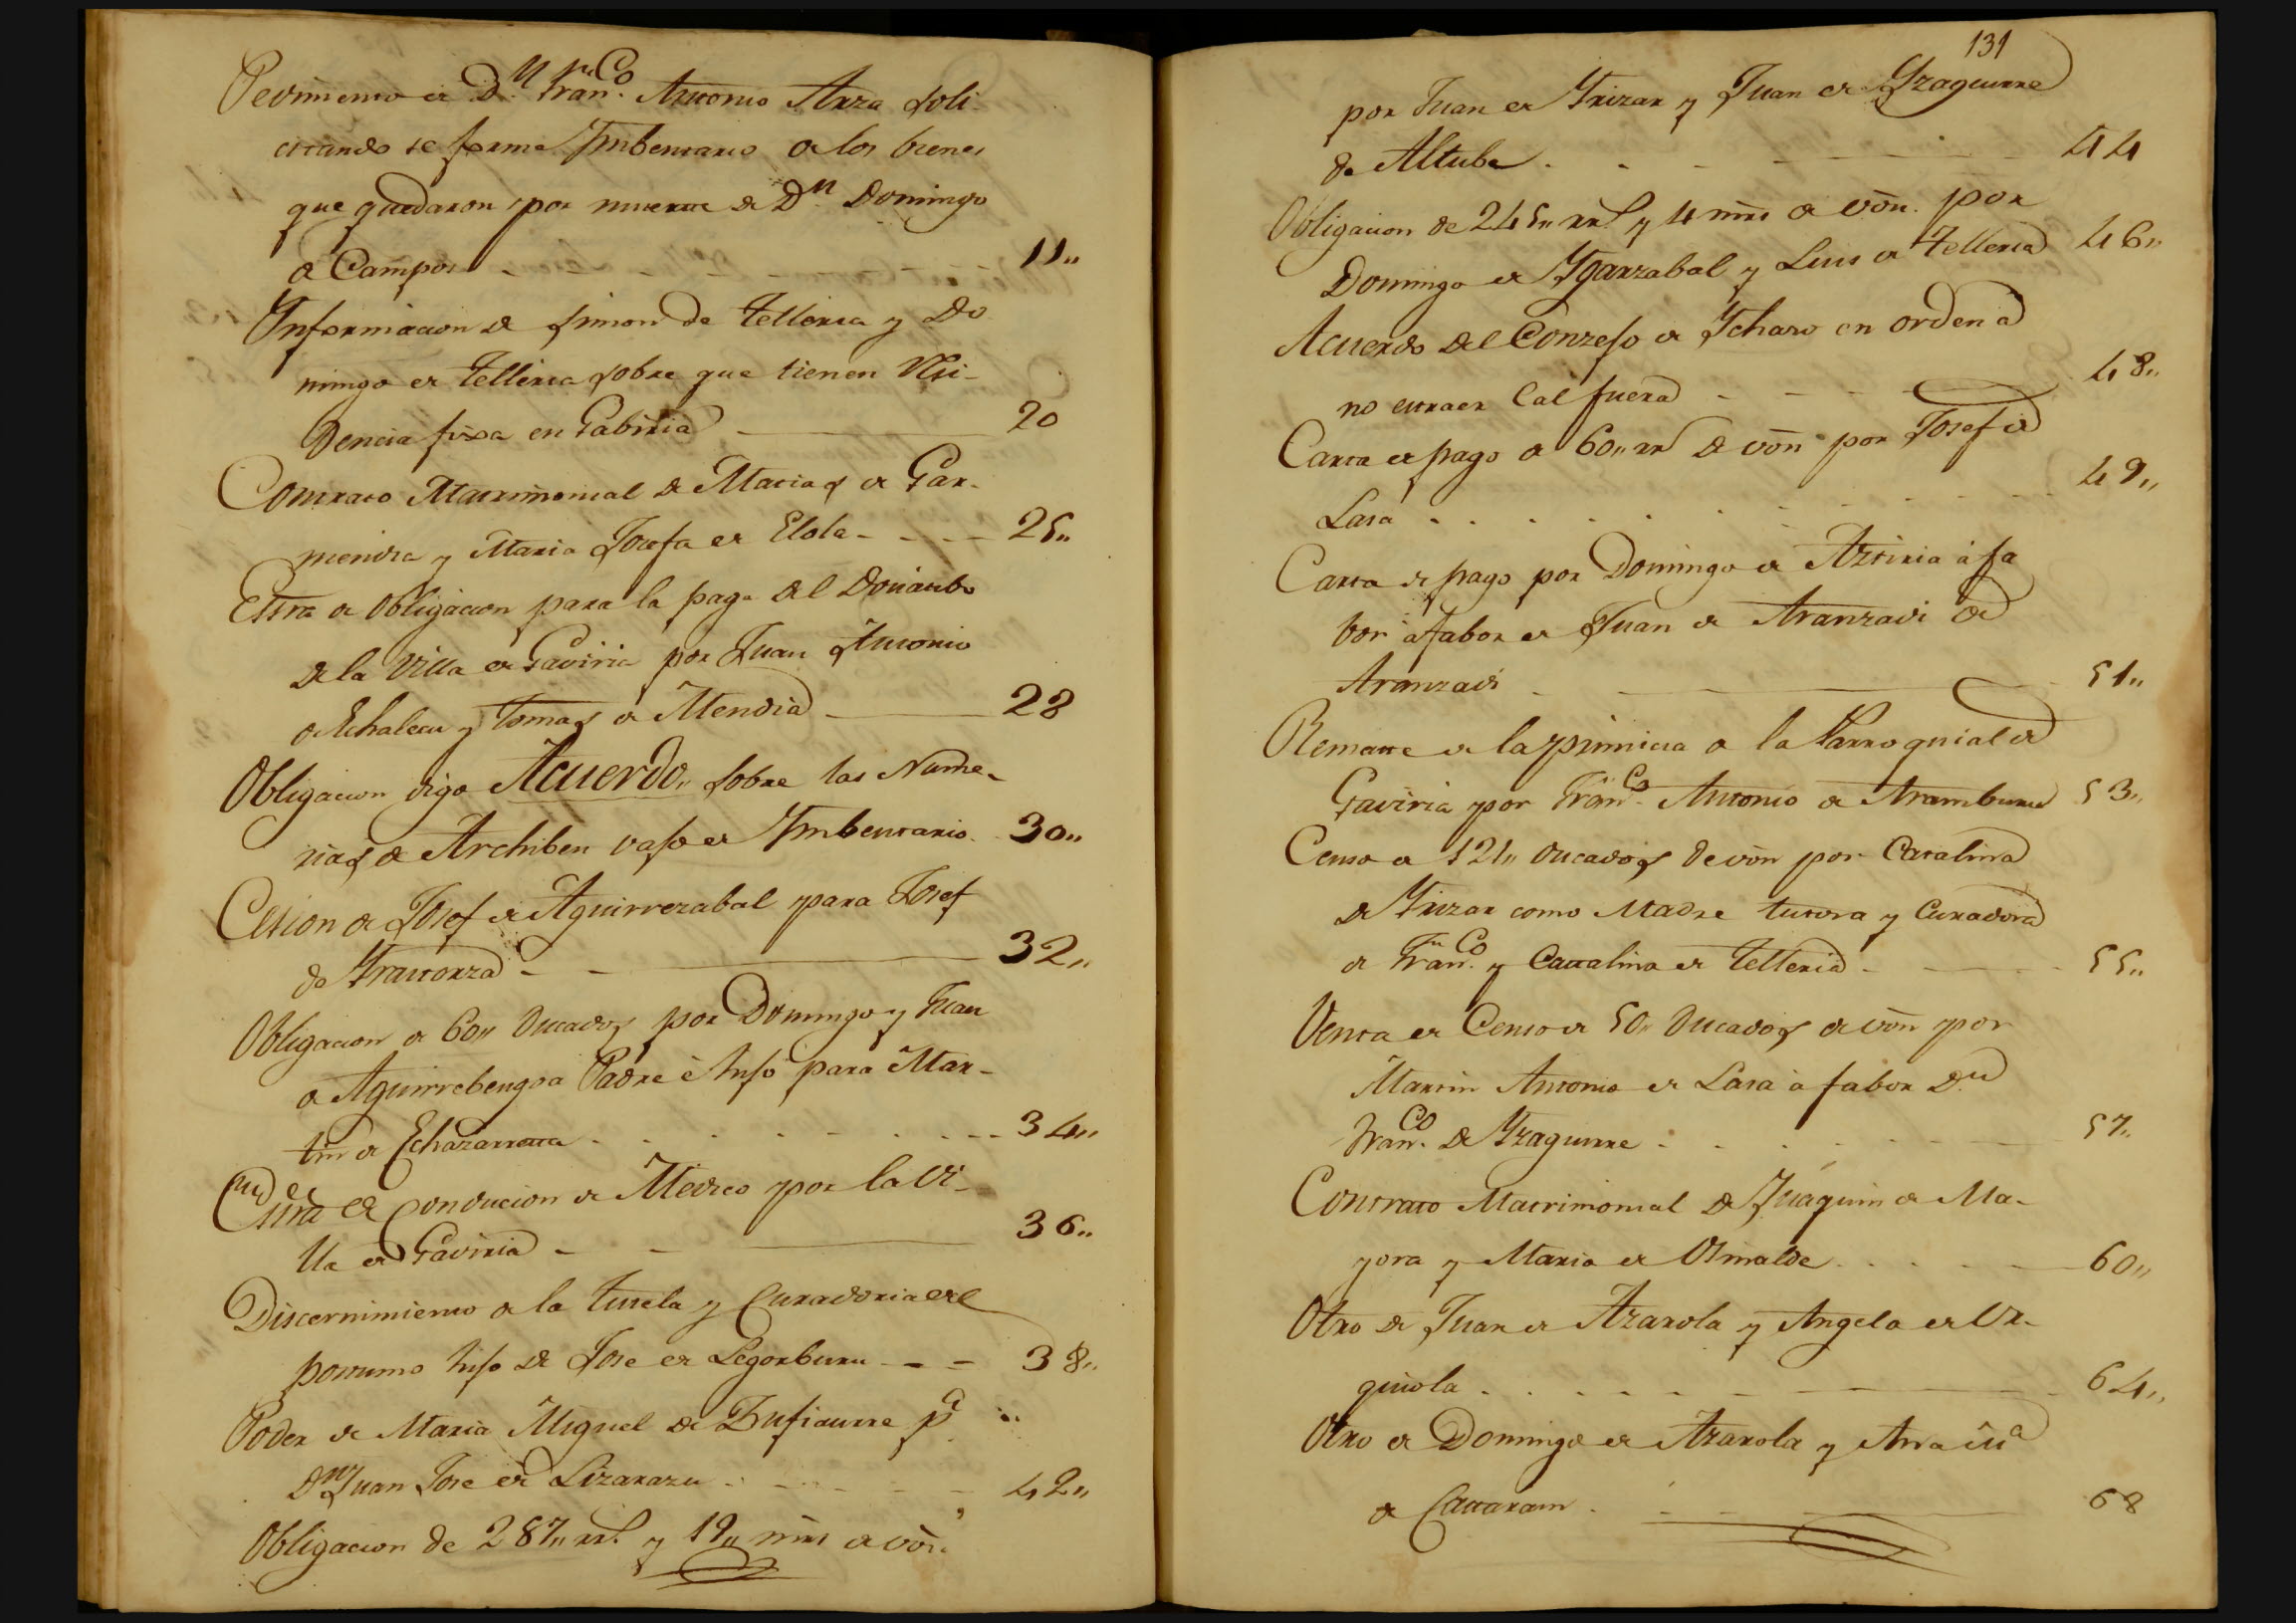 Pedimento de Dn Franco Antonio Arza soli
citando se forme Ymbentario de los bienes
que quedaron por muerte de Dn Domingo
de Campos 11,,
Ynformacion de Simon de Telleria y Do
mingo de Telleria sobre que tienen resi-
dencia fixa en Gabiria 20
Contrato Matrimonial de Matias de Gar-
mendia y Maria Josefa de Elola 25,,
Essra de obligacion para la paga del Donatibo
de la Villa de Gaviria por Juan Antonio
de Echalecu y Tomas de Mendia 28
Obligacion digo Acuerdo,, sobre las Nume-
rias de Archiben vaso de Ymbentario 30,,
Cesion de Josef de Aguirrezabal para Josef
de Yrastorza 32,,
Obligacion de 60,, Ducados por Domingo y Juan
de Aguirrebengoa Padre è hijo para Mar-
tin de Echazarreta 34,,
Essra de Conducion de Medico por la Vi-
lla de Gaviria 36,,
Discernimiento de la tutela y Curadoria del
postumo hijo de Jose de Legorburu 38,,
Poder de Maria Miguel de Zufiaurre pa
Dn Juan Jose de Lizarazu 42,,
Obligacion de 287,, rrs. y 19,, mrs de von.
131
por Juan de Yrizar y Juan de Yzaguirre
de Altube 44
Obligacion de 245,, rrs y 4 mrs de von. por
Domingo de Ygarzabal y Luis de Telleria 46,,
Acuerdo del Conzejo de Ychaso en orden a
no extraer Cal fuera 48,,
Carta de pago de 60,, rrs de von por Josef de
Lasa 49,,
Carta de pago por Domingo de Aztiria à fa
bor à fabor de Juan de Aranzadi de
Aranzadi 51,,
Remate de la primicia de la Parroquial de
Gaviria por Franco Antonio de Aramburu 53,,
Censo de 121,, ducados de von por Catalina
de Yrizar como Madre tutora y Curadora
de Franco y Catalina de Telleria 55,,
Venta de Censo de 50,, Ducados de von por
Martin Antonio de Lasa à fabor Dn
Franco de Yzaguirre 57,,
Contrato Matrimonial de Juaquin de Ma-
yora y Maria de Usinalde 60,,
Otro de Juan de Azarola y Angela de Ur-
quiola 64,,
Otro de Domingo de Azarola y Ana Ma
de Cattarain 68